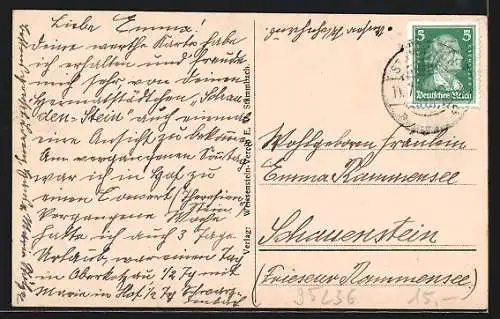 Liebe Emma!
Deine werthe Karte habe
ich erhalten und freute
mich sehr von deinem
"Schau-
den-Stein" auch einmal
eine Ansicht zu bekommen
Am vergangenen Sonntag
war ich in Hof zu
einem Concert Theresien
Stein
Vergangene Woche
hatte ich auch 3 Tage
Urlaub, war einen Tag
in Oberkotzau 1/2 Tg mit
Marie in Hof 1/2 Tg
Verlag: Weissenstein-Verein E. V. Stammbach.
5 5
Deutsches Reich
Wohlgeboren Fräulein
Emma Rammensee
Schauenstein
(Friseur Rammensee)
95236
15,-